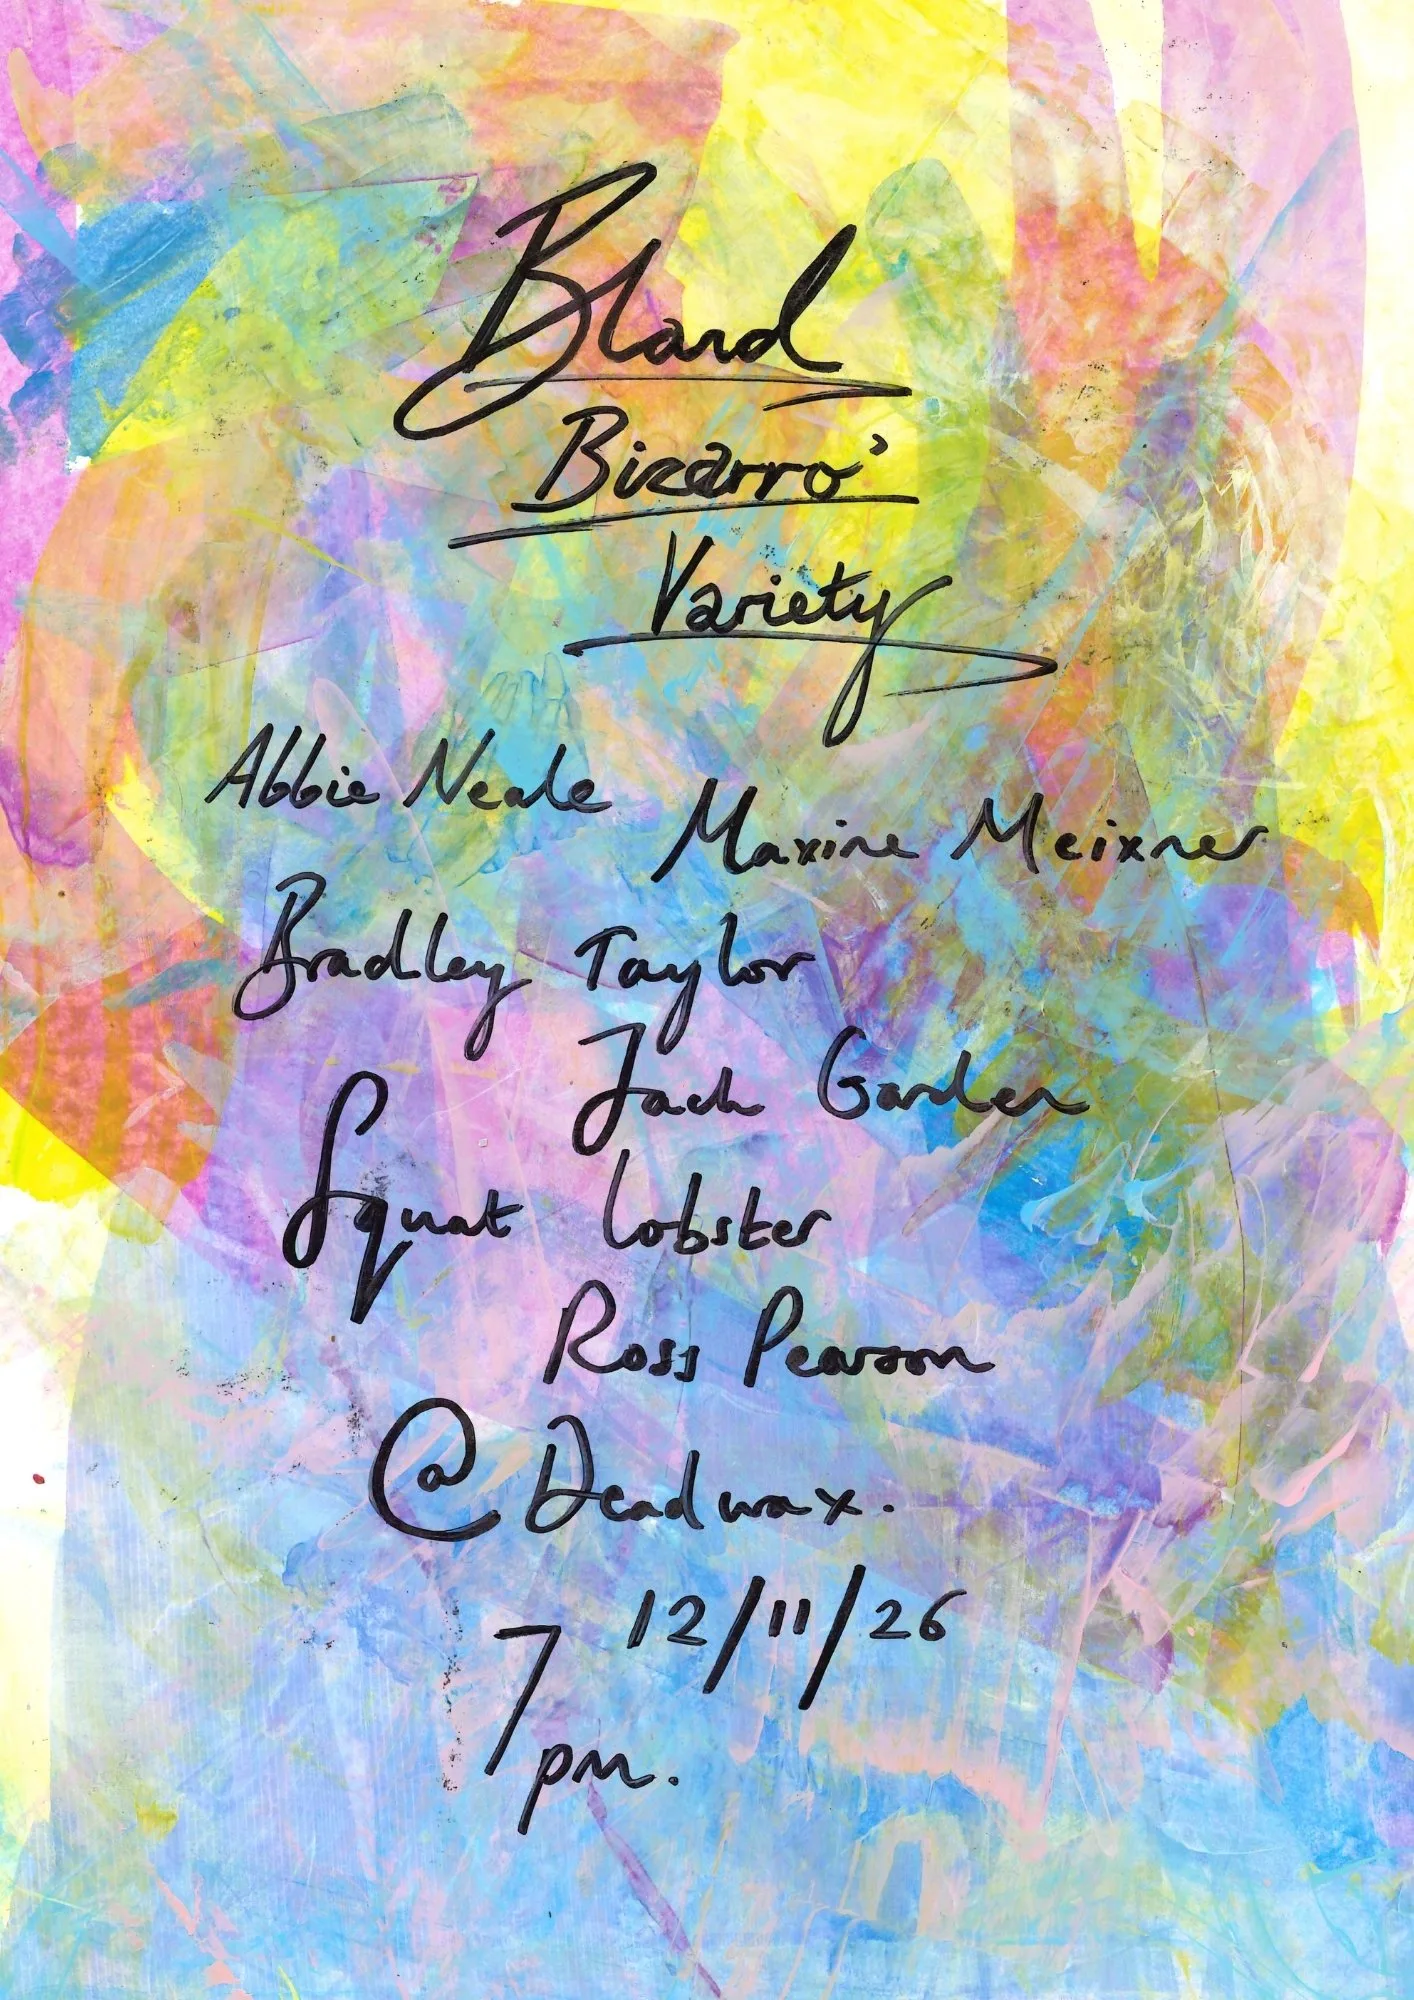 Bland
Bizarro'
Variety
Abbie Neale
Maxine Meixner
Bradley Taylor
Jack Garden
Squat Lobster
Ross Pearson
@ Deadwax.
12/11/26
7pm.